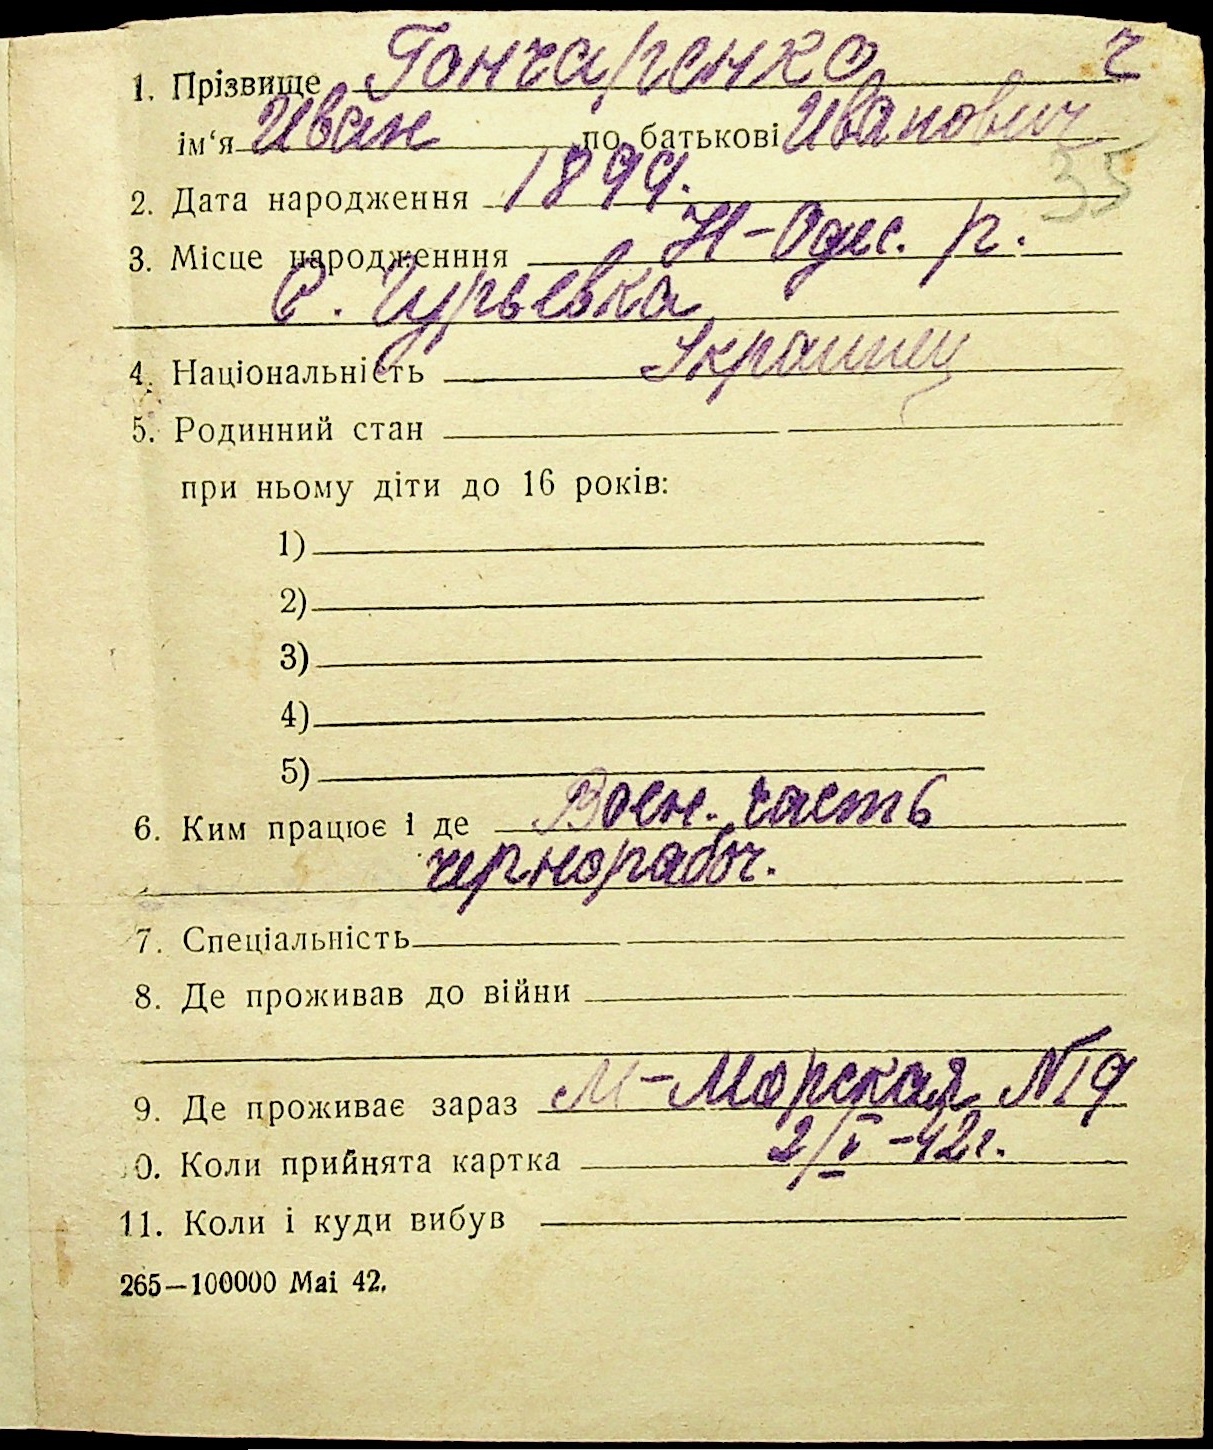 1. Прізвище Гончаренко ч
ім'я Иван по батькові Иванович
35
2. Дата народження 1899.
3. Місце народженння Н-Одес. р.
с. Гурьевка
4. Національність Украинец
5. Родинний стан
при ньому діти до 16 років:
1)
2)
3)
4)
5)
6. Ким працює і де Воен. часть
чернорабоч.
7. Спеціальність
8. Де проживав до війни
9. Де проживає зараз М-Морская №19
0. Коли прийнята картка 2/V-42г.
11. Коли і куди вибув
265—100000 Mai 42.